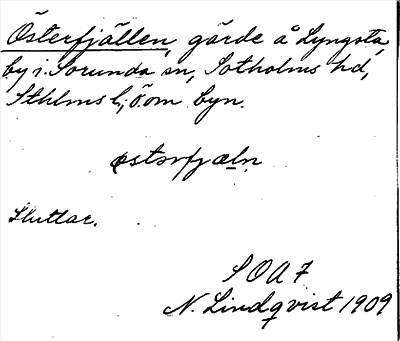 Österfjällen, gärde å Lyngsta
by i Sorunda sn, Sotholms hd,
Sthlms l; ö om byn.
østərfjæln
Sluttar.
SOA 7
N. Lindqvist 1909